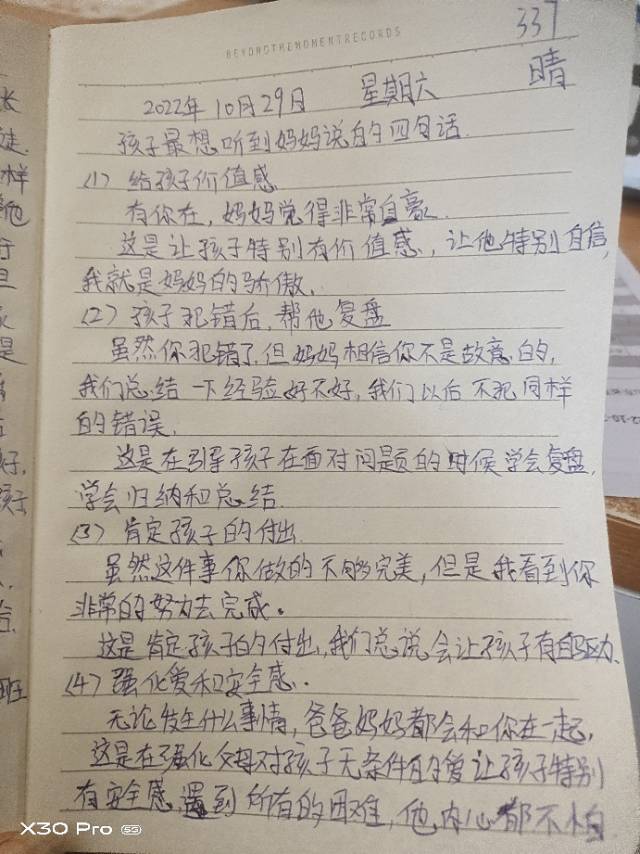 337
BEYONDTHEMOMENTRECORDS
2022年10月29日 星期六 晴
孩子最想听到妈妈说的四句话.
(1) 给孩子价值感.
有你在，妈妈觉得非常自豪.
这是让孩子特别有价值感，让他特别自信，
我就是妈妈的骄傲.
(2) 孩子犯错后，帮他复盘
虽然你犯错了.但妈妈相信你不是故意的，
我们总结一下经验好不好，我们以后不犯同样
的错误.
这是在引导孩子在面对问题的时候学会复盘，
学会归纳和总结.
(3) 肯定孩子的付出.
虽然这件事你做的不够完美，但是我看到你
非常的努力去完成。
这是肯定孩子的付出，我们总说会让孩子有自驱力.
(4) 强化爱和安全感.
无论发生什么事情，爸爸妈妈都会和你在一起，
这是在强化父母对孩子无条件的爱让孩子特别
有安全感，遇到所有的困难，他内心都不怕
X30 Pro 5G